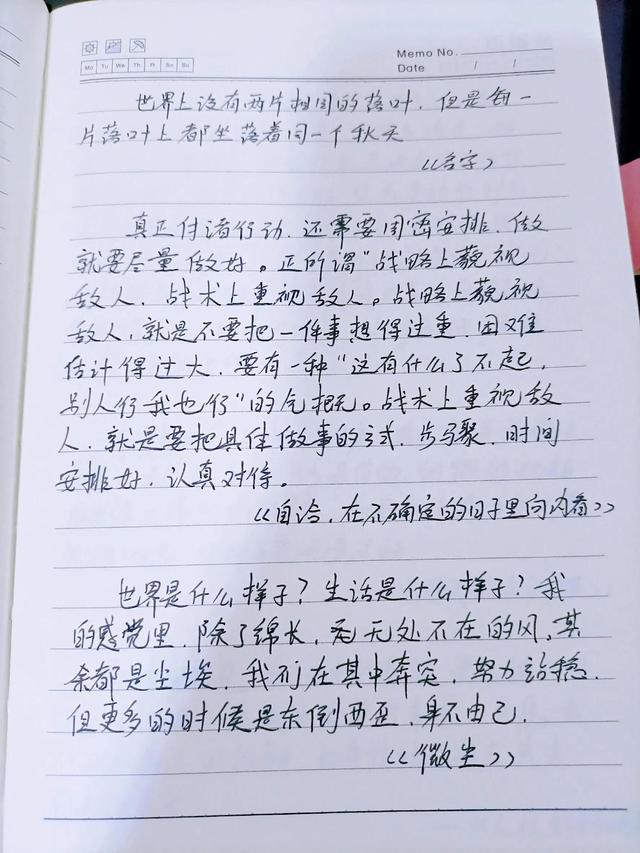 Memo No.
Mo Tu We Th Fr Sa Su
Date / /
世界上没有两片相同的落叶，但是每一
片落叶上都坐落着同一个秋天
《名字》
真正付诸行动，还需要周密安排，做
就要尽量做好。正所谓"战略上藐视
敌人，战术上重视敌人。战略上藐视
敌人，就是不要把一件事想得过重，困难
估计得过大，要有一种"这有什么了不起，
别人行我也行"的气概。战术上重视敌
人，就是要把具体做事的方式、步骤、时间
安排好，认真对待。
《自洽，在不确定的日子里向内看》
世界是什么样子？生活是什么样子？我
的感觉里，除了绵长，无处不在的风，其
余都是尘埃，我们在其中奔突，努力站稳，
但更多的时候是东倒西歪，身不由己。
《微尘》